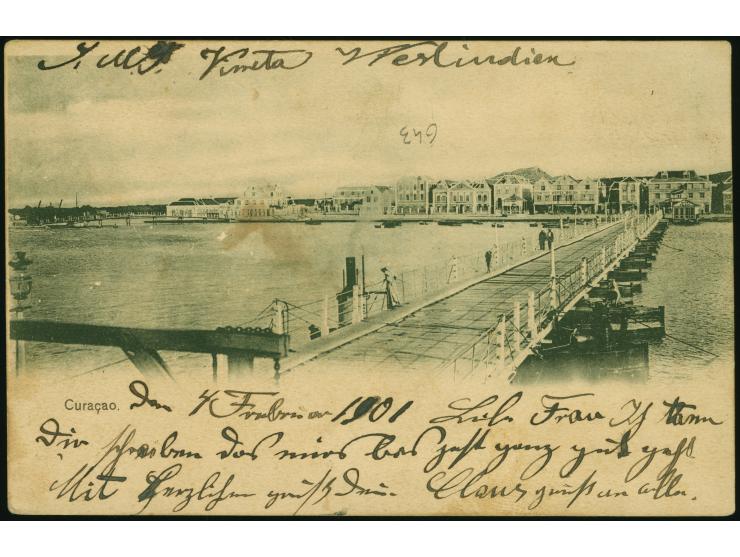 S.M.S. Vineta Westindien
643
Curaçao. Den 4 Frebruar 1901 Liebe Frau Ich kann
Dir schreiben das mirs bes jest ganz gut geht
Mit Herzlichen gruß Dein. Claus grüst an alle.